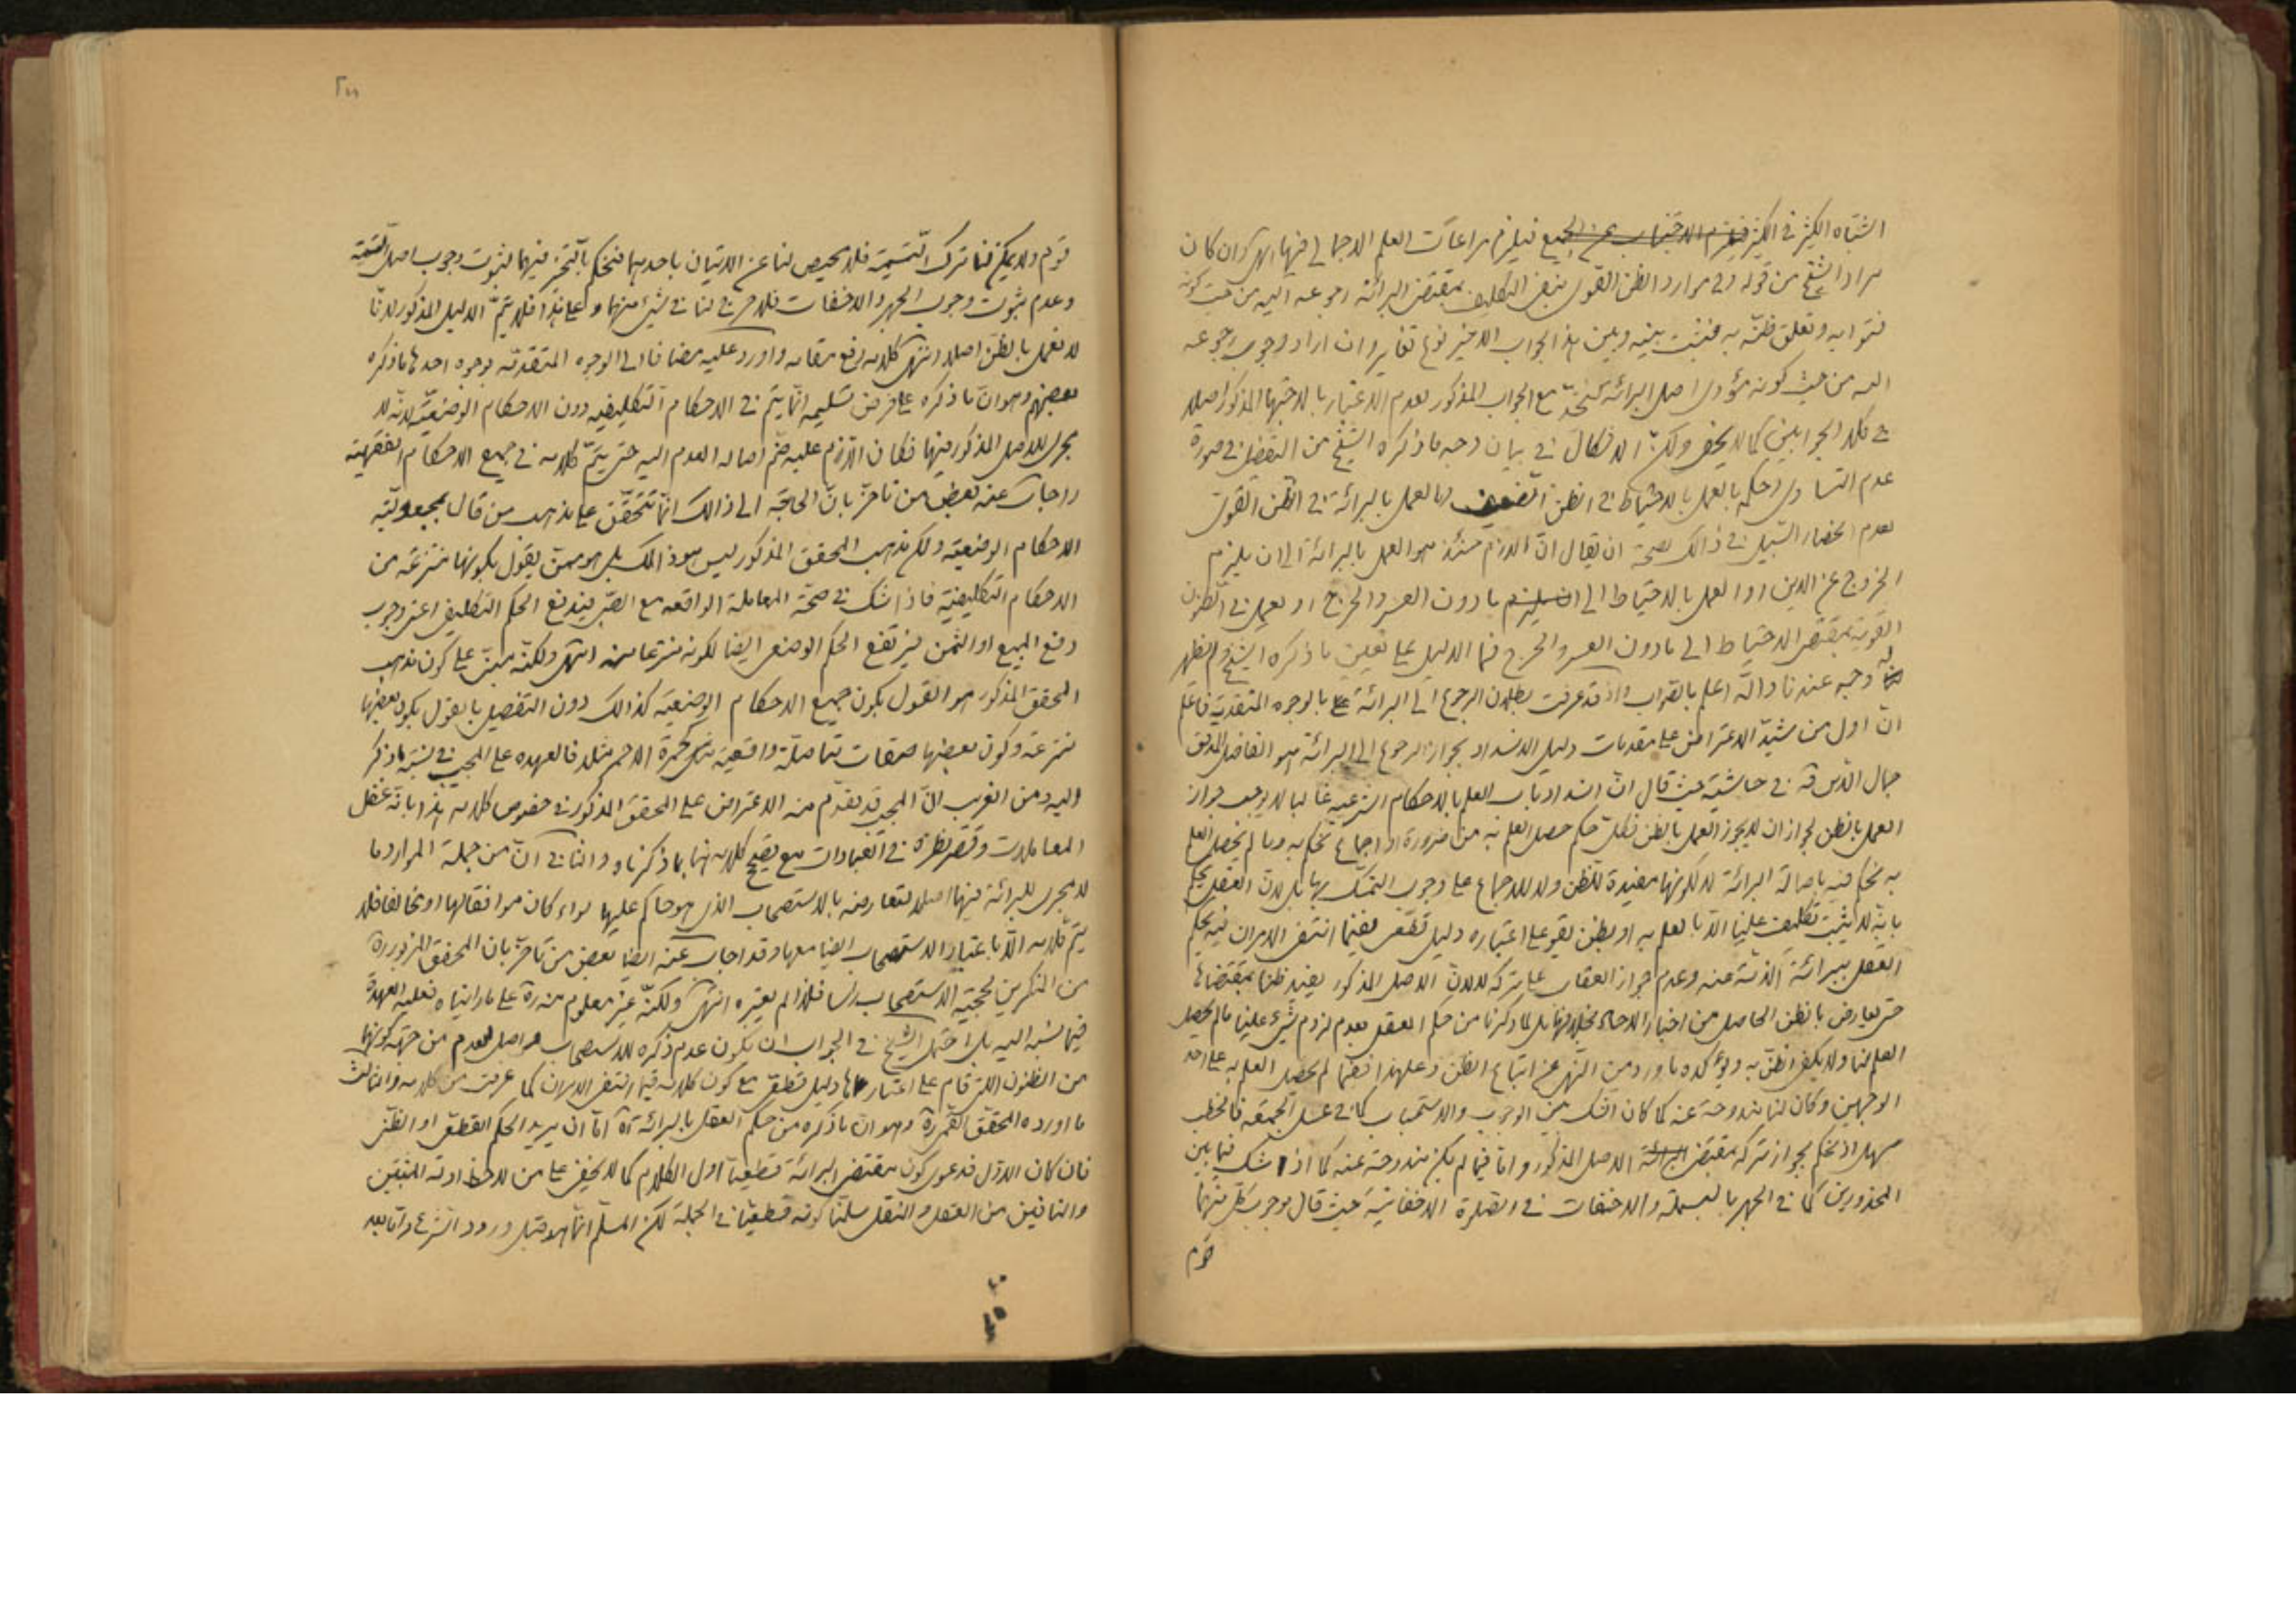 اشتباه الكثير في الكثير فيلزم مراعات العلم الاجمالي فيها انتهى وان كان
مراد الشيخ من قوله وفي موارد الظن القوى بنفى التكليف بمقتضى البرائة رجوعه اليه من حيث كونه
فتوائه وتعلق ظنّه به فيثبت بينه وبين هذا الجواب الاخير نوع تغاير وان اراد وجوب رجوعه
اليه من حيث كونه مؤدى اصل البرائة مع الجواب المذكور لعدم الاعتبار بالاجتهاد المذكور اصلا
في كلا الجوابين كما لا يخفى ولكن الاشكال في بيان وجه ما ذكره الشيخ من التفصيل في صورة
عدم التساوى وحكمه بالعمل بالاحتياط في الظن الضعيف والعمل بالبرائة في الظن القوى
لعدم انحصار السبيل في ذالك لصحة ان يقال انّ اللازم حينئذ هو العمل بالبرائة الى ان يلزم
الخروج عن الدين او العمل بالاحتياط الى ما دون العسر والحرج او يعمل في الظنون
القوية بمقتضى الاحتياط الى ما دون العسر والحرج فما الدليل على تعيين ما ذكره الشيخ ولم يظهر
له وجه عندنا والله اعلم بالصواب واذ قد عرفت بطلان الرجوع الى البرائة بالوجوه المتقدمة فاعلم
انّ اول من شيّد الاعتراض على مقدمات دليل الانسداد بجواز الرجوع الى البرائة هو الفاضل المدقق
جمال الدين قه في حاشيته حيث قال انّ انسداد باب العلم بالاحكام الشرعية غالبا لا يوجب جواز
العمل بالظن لجواز ان لا يجوز العمل بالظن فكلّ حكم حصل العلم به من ضرورة او اجماع نحكم به وما لم يحصل العلم
به نحكم فيه باصالة البرائة لا لكونها مفيدة للظن ولا للاجماع على وجوب التمسّك بها بل لانّ العقل يحكم
بانّه لا يثبت تكليف علينا الا بالعلم به او بظن يقوم على اعتباره دليل قطعى ففيما انتفى الامران فيه يحكم
العقل ببرائة الذمة عنه وعدم جواز العقاب على تركه لا لانّ الاصل المذكور يفيد ظنا بمقتضاها
حتى يعارض بالظن الحاصل من اخبار الاحاد بخلافها بل لما ذكرنا من حكم العقل بعدم لزوم شىء علينا ما لم يحصل
العلم لنا ولا يكفى الظنّ به ويؤكده ما ورد من النهى عن اتباع الظن وعلى هذا ففيما لم يحصل العلم به على احد
الوجهين وكان لنا مندوحة عنه كما كان الشك بين الوجوب والاستحباب كما في غسل الجمعة فالخطب
سهل اذ نحكم بجواز تركه بمقتضى الاصل المذكور وامّا فيما لم يكن مندوحة عنه كما اذا شك فيما بين
المحذورين كما في الجهر بالبسملة والاخفات في الصلوة الاخفاتية حيث قال بوجوب كل منهما
قوم
قوم ولا يمكن لنا ترك التسمية فلا محيص لنا عن الاتيان باحدهما فنحكم بالتخيّر فيهما لثبوت وجوب اصل التسمية
وعدم ثبوت وجوب الجهر والاخفات فلا حرج لنا في شىء منهما وعلى هذا فلا يتمّ الدليل المذكور لانّا
لا نعمل بالظن اصلا انتهى كلامه رفع مقامه واورد عليه مضافا الى الوجوه المتقدمة بوجوه احدها ما ذكره
بعضهم وهو انّ ما ذكره على فرض تسليمه انّما يتمّ في الاحكام التكليفيه دون الاحكام الوضعيّة لانّه لا
مجرى للاصل المذكور فيها فكان اللازم عليه ضمّ اصالة العدم اليه حتى يتمّ كلامه في جميع الاحكام الفقهيّة
واجاب عنه بعض من تاخّر بانّ الحاجة الى ذالك انّما تتحقّق على مذهب من قال بمجعوليّة
الاحكام الوضعيّة ولكن مذهب المحقق المذكور ليس هو ذالك بل هو ممّن يقول بكونها منتزعة من
الاحكام التكليفيّة فاذا شك في صحّة المعاملة الواقعة مع الصّبى فيدفع الحكم التكليفى اعنى وجوب
دفع المبيع او الثمن فيرتفع الحكم الوضعى ايضا لكونه منتزعا منه انتهى ولكنّه مبنىّ على كون مذهب
المحقق المذكور هو القول بكون جميع الاحكام الوضعيّة كذالك دون التفصيل بالقول بكون بعضها
منتزعة وكون بعضها صفات متاصلة واقعيّة مثل حمرة الاحمر مثلا فالعهدة على المجيب في نسبة ما ذكر
اليه ومن الغريب انّ المجيب قد تقدم منه الاعتراض على المحقق المذكور في خصوص كلامه هذا بانّه غفل
المعاملات وقصّر نظره في العبادات مع تصحيح كلامه فيها بما ذكرناه والثانى انّ من جملة الموارد ما
لا مجرى للبرائة فيها اصلا لتعارضه بالاستصحاب الذى هو حاكم عليها سواء كان موافقا لها او مخالفا فلا
يتمّ كلامه الا باعتبار الاستصحاب ايضا معها وقد اجاب عنه ايضا بعض من تاخّر بان المحقق المزبور ره
من المنكرين لحجية الاستصحاب راسا فلذا لم يعتبره انتهى ولكنّه غير معلوم منه ره على ما راينا ه فعليه العهدة
فيما نسبه اليه بل احتمل الشيخ في الجواب ان يكون عدم ذكره للاستصحاب واصل العدم من جهة كونهما
من الظنون التى قام على اعتبارها دليل قطعى مع كون كلامه فيما انتفى الامران كما عرفت من كلامه والثالث
ما اورده المحقق القمى ره وهو انّ ما ذكره من حكم العقل بالبرائة آه امّا ان يريد الحكم القطعى او الظنى
فان كان الاوّل فدعوى كون مقتضى البرائة قطعيا اول الكلام كما لا يخفى على من لاحظ ادلة المثبتين
والنافين من العقل والنقل سلّمنا كونه قطعيّا في الجملة لكن المسلّم انّما هو قبل ورود الشرع وامّا بعد